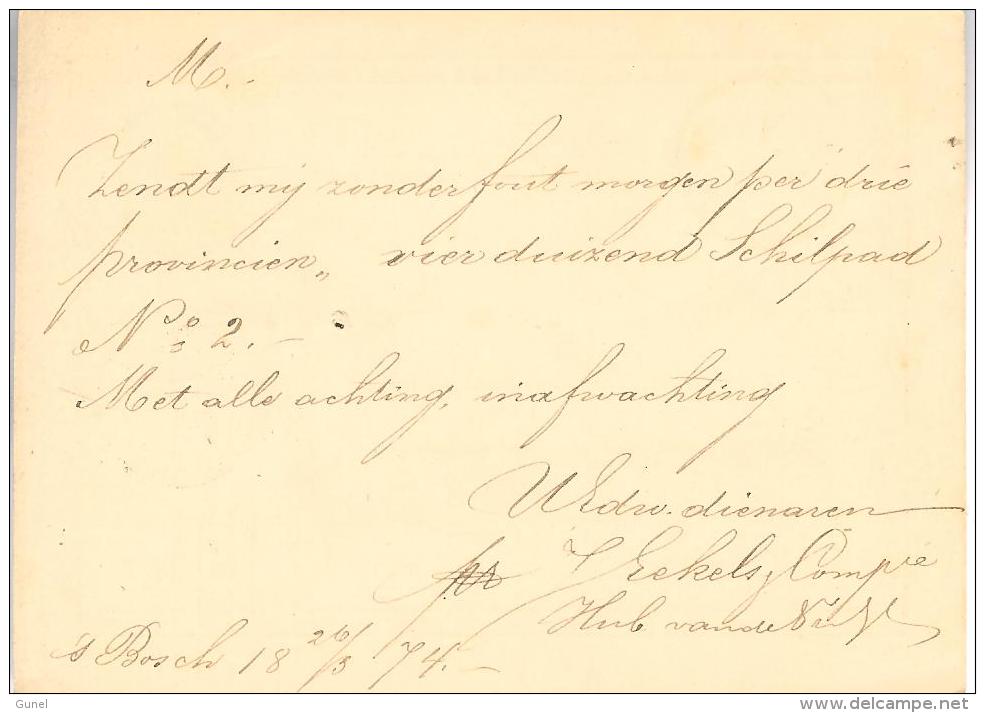 M.
Zendt mij zonder fout morgen per drie
provincien„ vier duizend Schilpad
No. 2.
Met alle achting, in afwachting
UEdw. dienaren
Eekels Compie
Hub. van de
's Bosch 18 26/3 74.
Gunel
www.delcampe.net